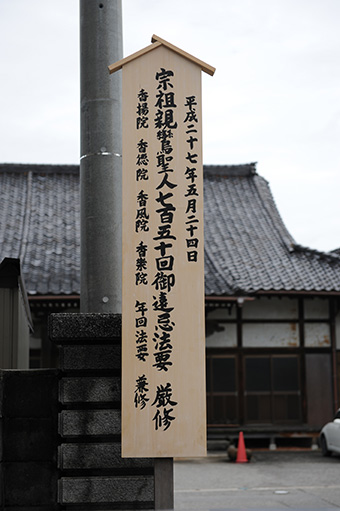 平成二十七年五月二十四日
宗祖親鸞聖人七百五十回御遠忌法要 厳修
香揚院 香徳院 香凬院 香樂院 年回法要 兼修